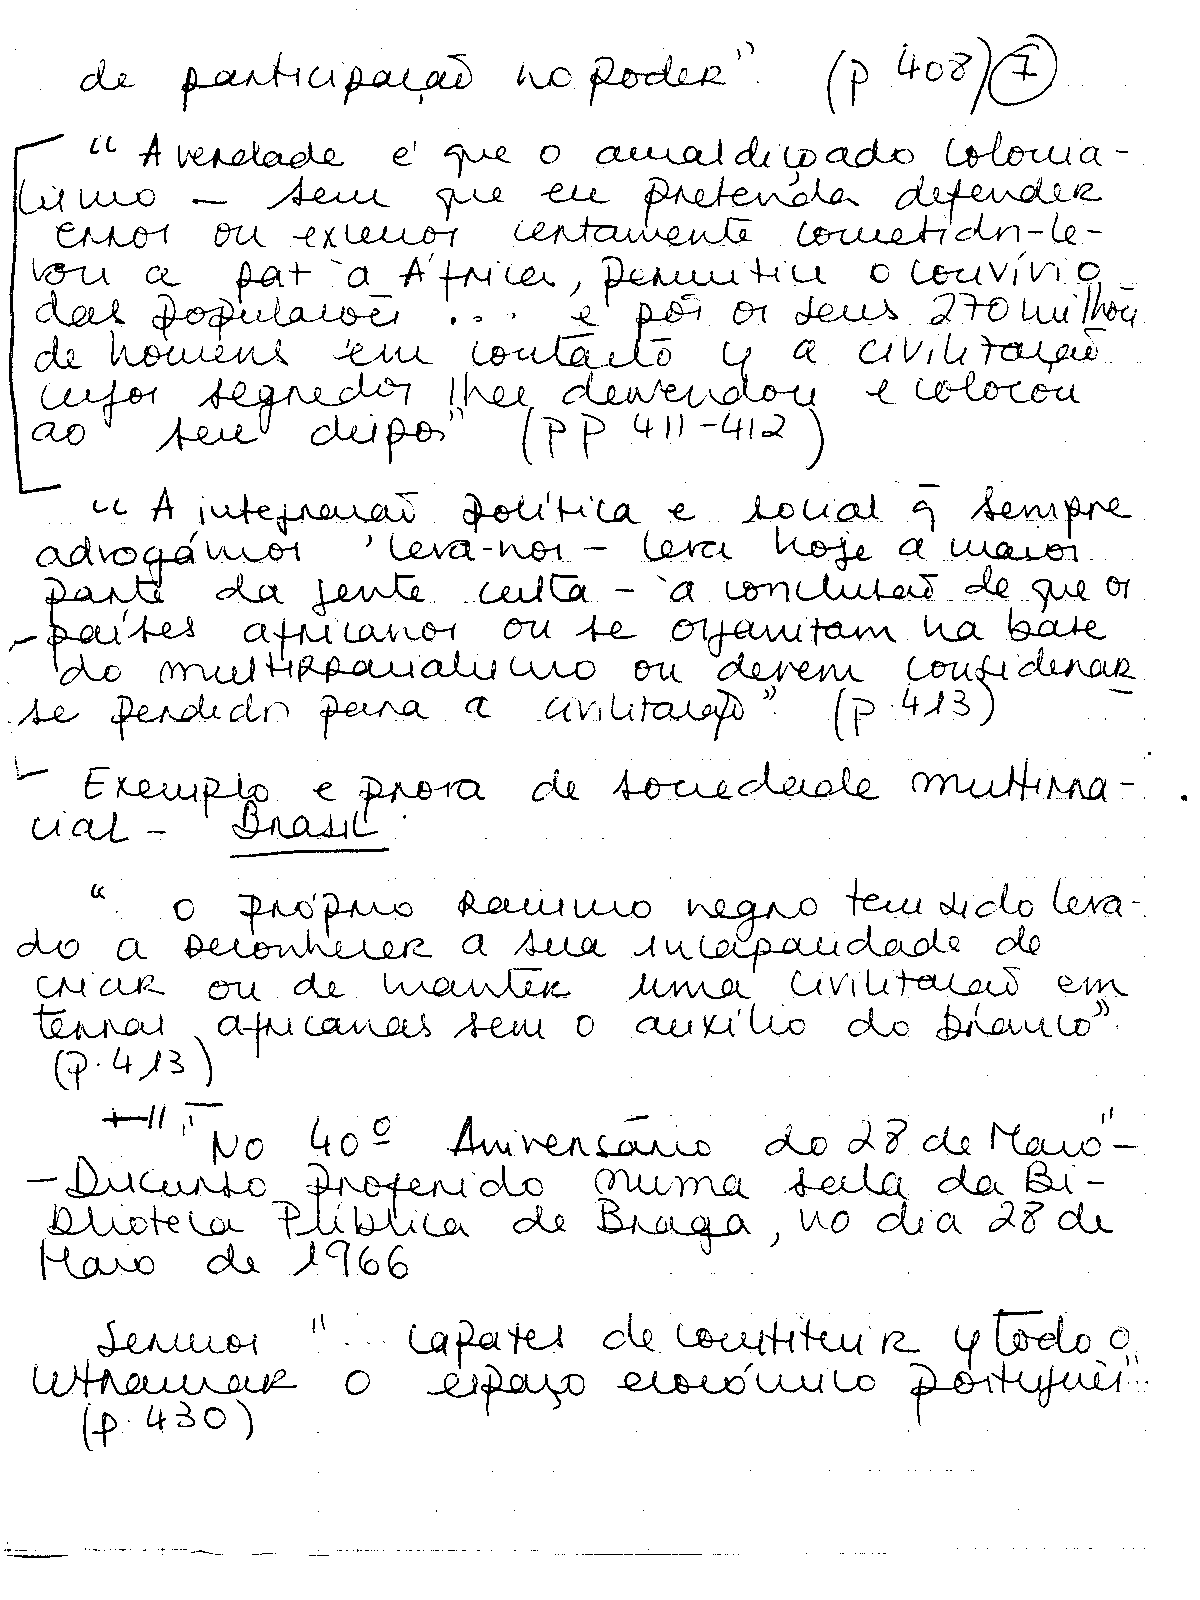 de participação no poder". (p 408) 7
"A verdade é que o amaldiçoado colonia-
lismo – sem que eu pretenda defender
erros ou excessos certamente cometidos - le-
vou a paz à África, permitiu o convívio
das populações ... e pôs os seus 270 milhões
de homens em contacto c/ a civilização
cujos segredos lhes desvendou e colocou
ao seu dispor" (pp 411-412)
"A integração política e social q sempre
advogámos leva-nos – leva hoje a maior
parte da gente culta – à conclusão de que os
países africanos ou se organizam na base
do multirracialismo ou devem considerar
se perdidos para a civilização". (p. 413)
Exemplo e prova de sociedade multirra-
cial – Brasil.
".. o próprio racismo negro tem sido leva-
do a reconhecer a sua incapacidade de
criar ou de manter uma civilização em
terras africanas sem o auxílio do branco".
(p. 413)
"No 40º Aniversário do 28 de Maio" -
- Discurso proferido numa sala da Bi-
blioteca Pública de Braga, no dia 28 de
Maio de 1966
Sermos "... capazes de constituir c/ todo o
Ultramar o espaço económico português"..
(p. 430)